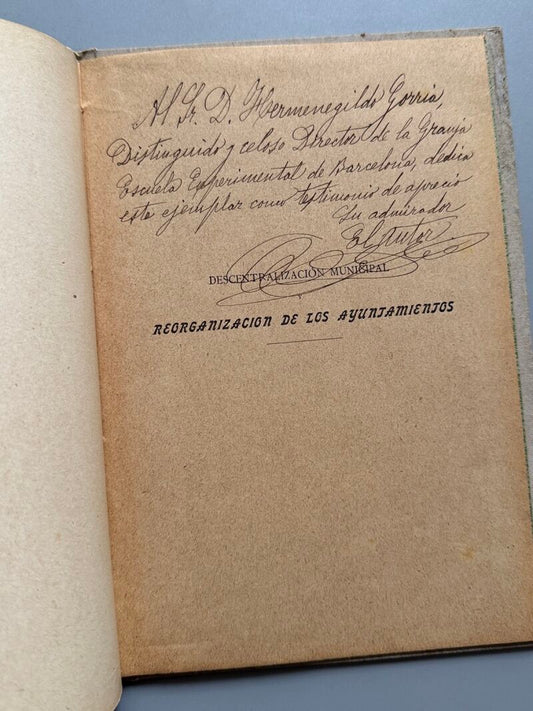 Al Sr. D. Hermenegildo Gorria,
Distinguido y celoso Director de la Granja
Escuela Experimental de Barcelona, dedica
este ejemplar como testimonio de aprecio
Su admirador
El Autor
DESCENTRALIZACIÓN MUNICIPAL
Y
REORGANIZACION DE LOS AYUNTAMIENTOS